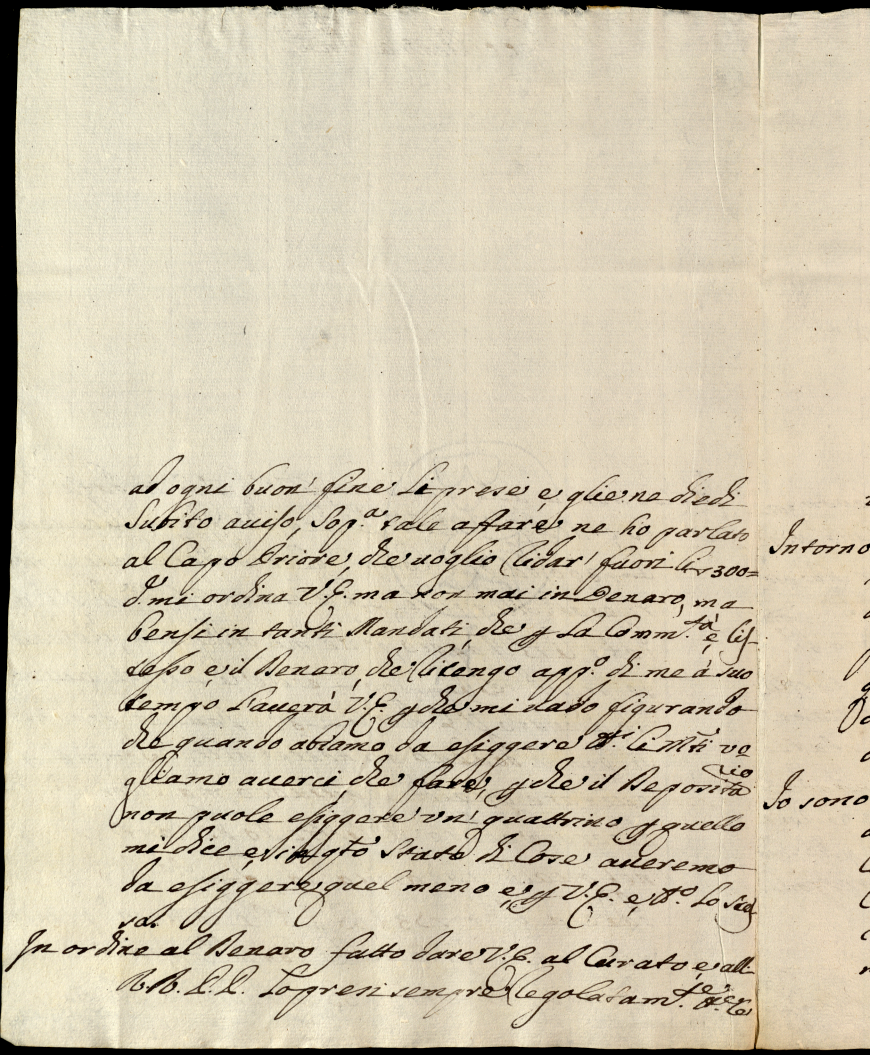 ad ogni buon' fine li presi e glie ne diedi
Subito auiso, Sop.ª tale affare ne ho parlato
al Capo Priore, che uoglio lidar' fuori lir 300=
ch' mi ordina V.E. ma non mai in Denaro, ma
bensi in tanti Mandati che p La Comm.tà è lis-
tesso e il Denaro, che li tengo app.º di me à suo
tempo L'auerà V.E. p che mi uado figurando
che quando abiamo da esiggere li Mti vo
gliamo auerci che fare, p che il Deposita
rio
non puole esiggere vn' quattrino p quello
mi dice, e in q.to Stato di Cose aueremo
da esiggere quel meno e, p V.E. e, Lo
sa.
In ordine al Denaro fatto dare V.E. al Curato e all
R.R. P.P. Lo presi sempre legolatam.te
Intorno
Io sono